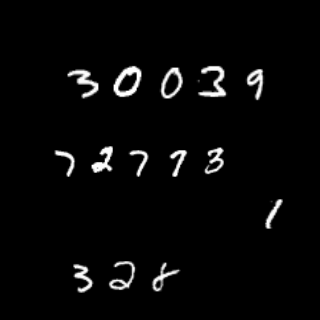 30039
72773
1
328